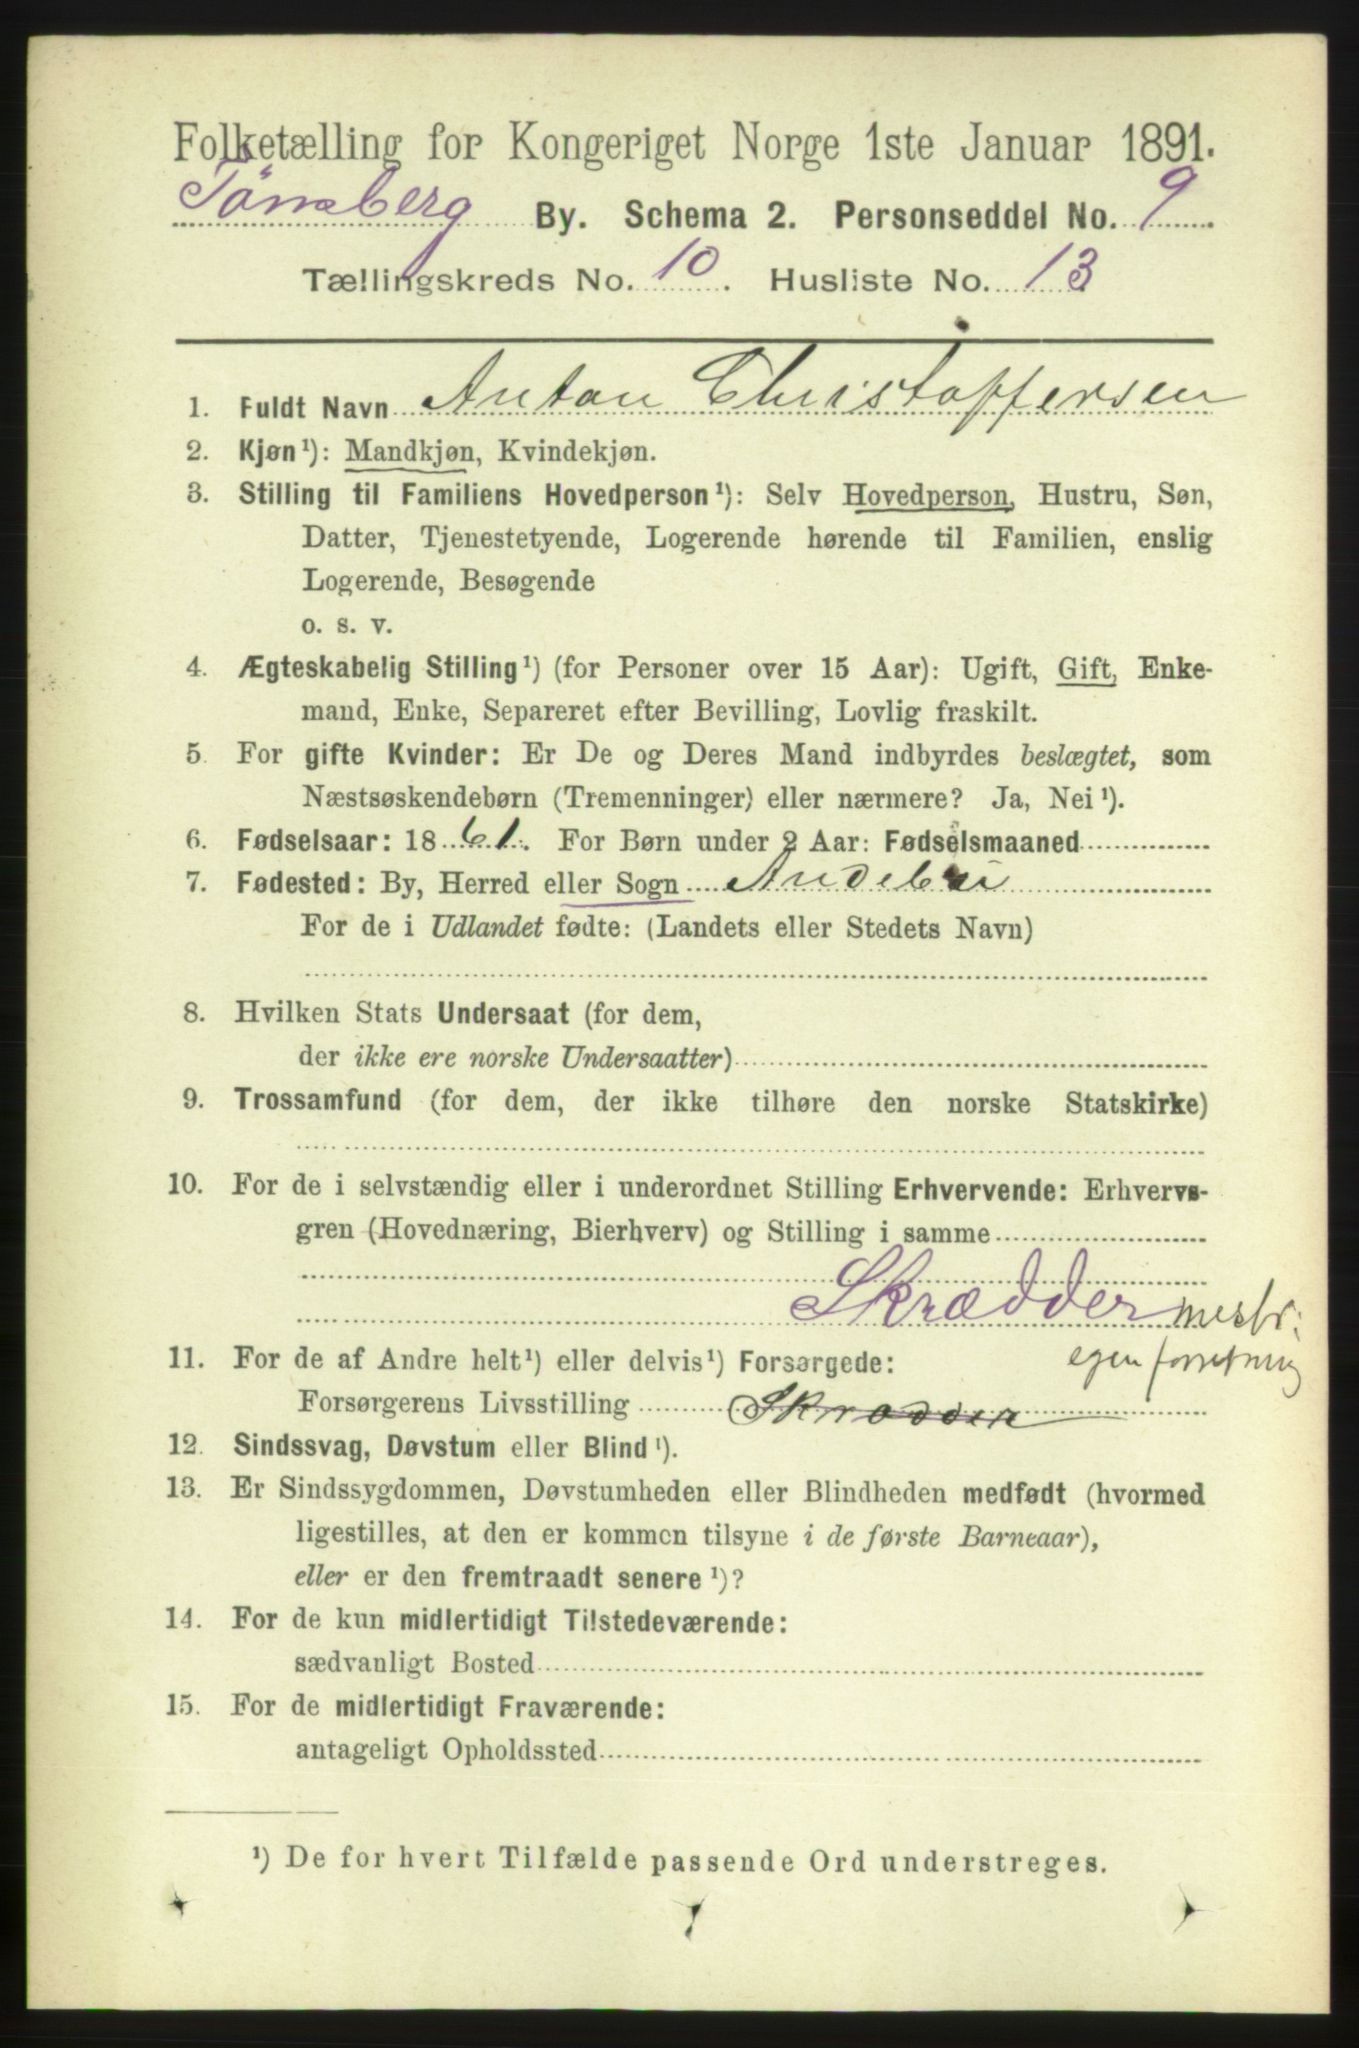 Folketælling for Kongeriget Norge 1ste Januar 1891.
Tønsberg By. Schema 2. Personseddel No. 9
Tællingskreds No. 10. Husliste No. 13
1. Fuldt Navn Anton Christoffersen
2. Kjøn¹): Mandkjøn, Kvindekjøn.
3. Stilling til Familiens Hovedperson¹): Selv Hovedperson, Hustru, Søn,
Datter, Tjenestetyende, Logerende hørende til Familien, enslig
Logerende, Besøgende
o. s. v.
4. Ægteskabelig Stilling¹) (for Personer over 15 Aar): Ugift, Gift, Enke-
mand, Enke, Separeret efter Bevilling, Lovlig fraskilt.
5. For gifte Kvinder: Er De og Deres Mand indbyrdes beslægtet, som
Næstsøskendebørn (Tremenninger) eller nærmere? Ja, Nei¹).
6. Fødselsaar: 1861. For Børn under 2 Aar: Fødselsmaaned
7. Fødested: By, Herred eller Sogn Andebu
For de i Udlandet fødte: (Landets eller Stedets Navn)
8. Hvilken Stats Undersaat (for dem,
der ikke ere norske Undersaatter)
9. Trossamfund (for dem, der ikke tilhøre den norske Statskirke)
10. For de i selvstændig eller i underordnet Stilling Erhvervende: Erhvervs-
gren (Hovednæring, Bierhverv) og Stilling i samme
Skrædder mestr:
egen forretning
11. For de af Andre helt¹) eller delvis¹) Forsørgede:
Forsørgerens Livsstilling Skrædder
12. Sindssvag, Døvstum eller Blind¹).
13. Er Sindssygdommen, Døvstumheden eller Blindheden medfødt (hvormed
ligestilles, at den er kommen tilsyne i de første Barneaar),
eller er den fremtraadt senere¹)?
14. For de kun midlertidigt Tilstedeværende:
sædvanligt Bosted
15. For de midlertidigt Fraværende:
antageligt Opholdssted
¹) De for hvert Tilfælde passende Ord understreges.